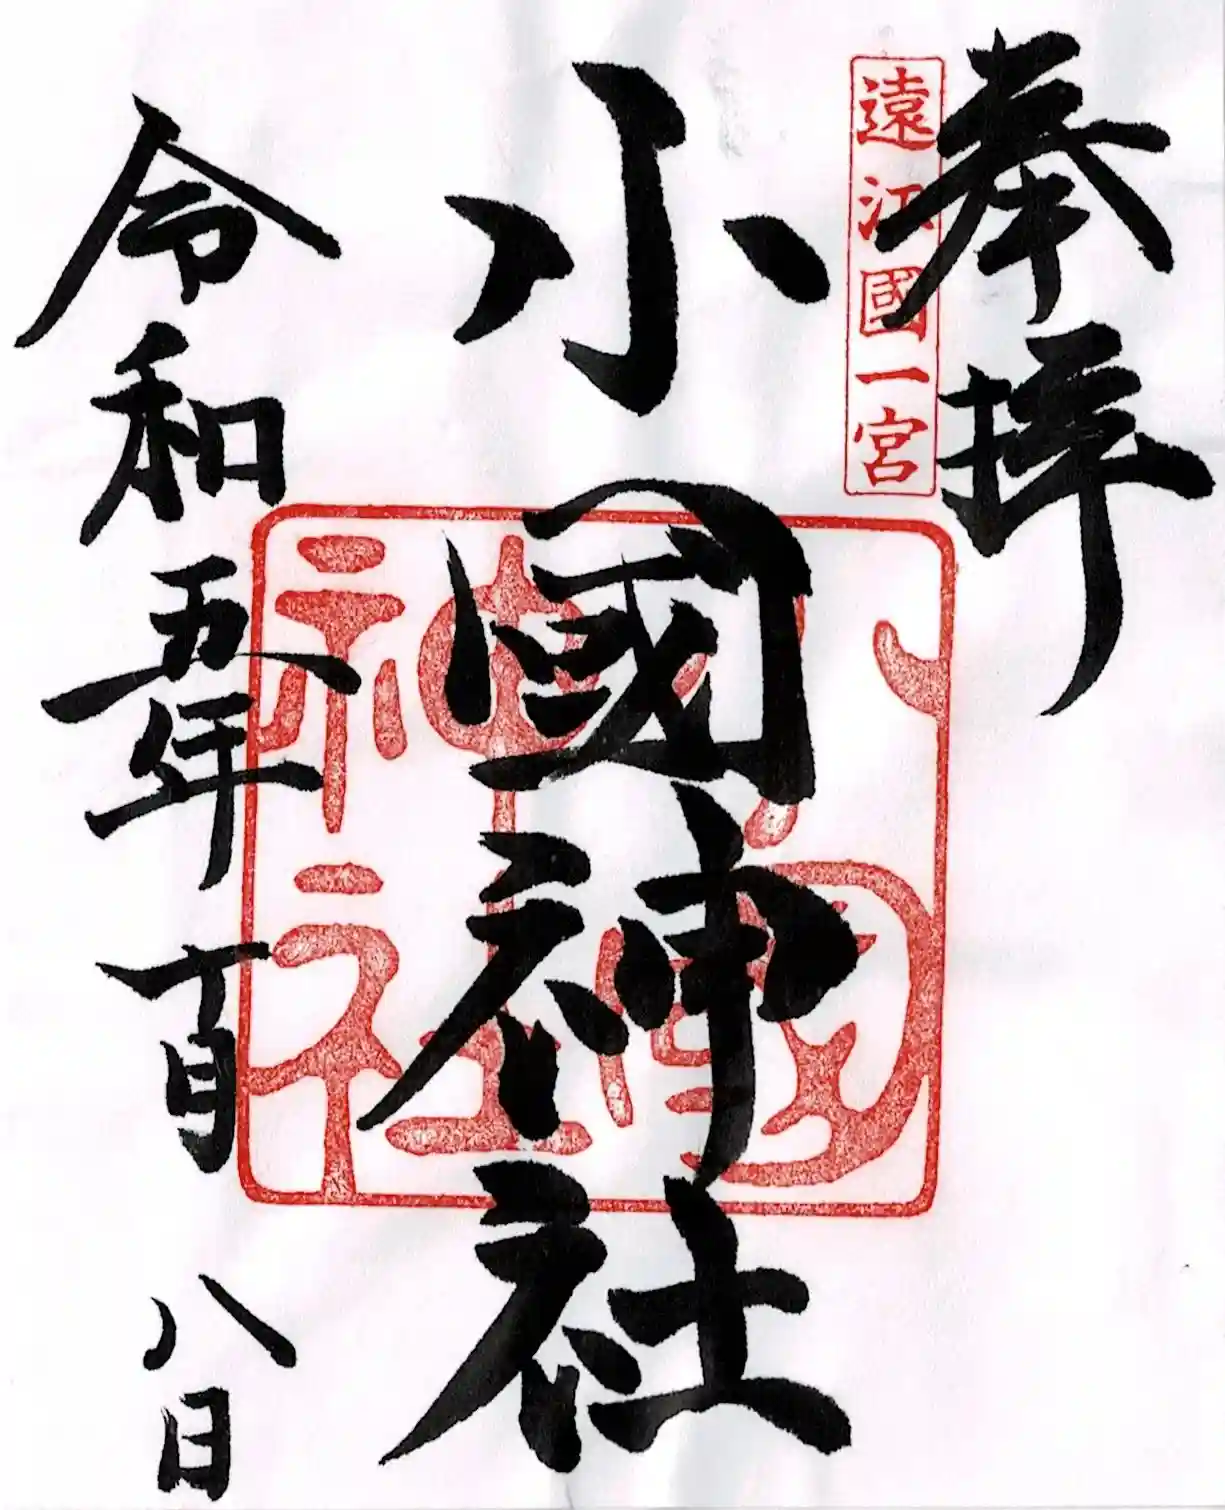 奉拝
遠江國一宮
小國神社
小國神社
令和五年 月 八日